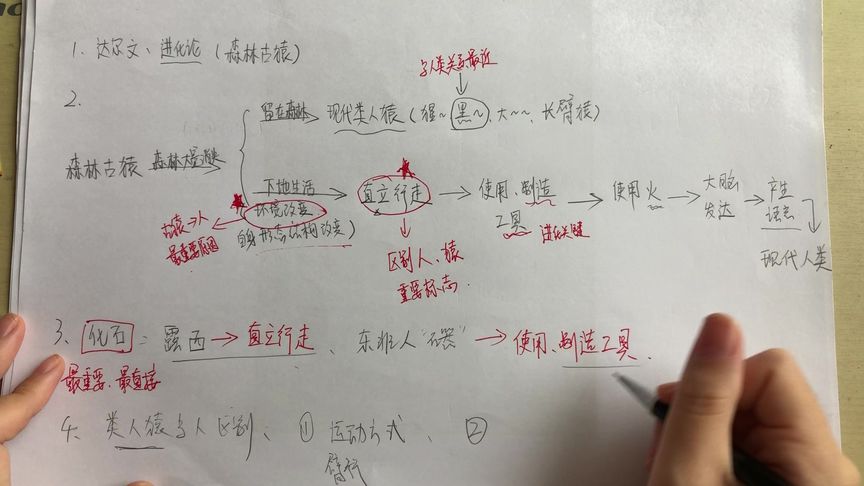 1、达尔文、进化论（森林古猿）
与人类关系最近
2.
留在森林 现代类人猿（猩～黑～、大～～、长臂猿）
森林古猿 森林大量消失
下地生活 直立行走 使用、制造工具 使用火 大脑发达 产生语言
环境改变
古猿→人
最重要原因
自身形态结构改变）
进化关键
区别人、猿
重要标志.
现代人类
3、化石：露西→直立行走、东非人"石器"→使用、制造工具.
最重要、最直接
4、类人猿与人区别、① 运动方式、②
臂行